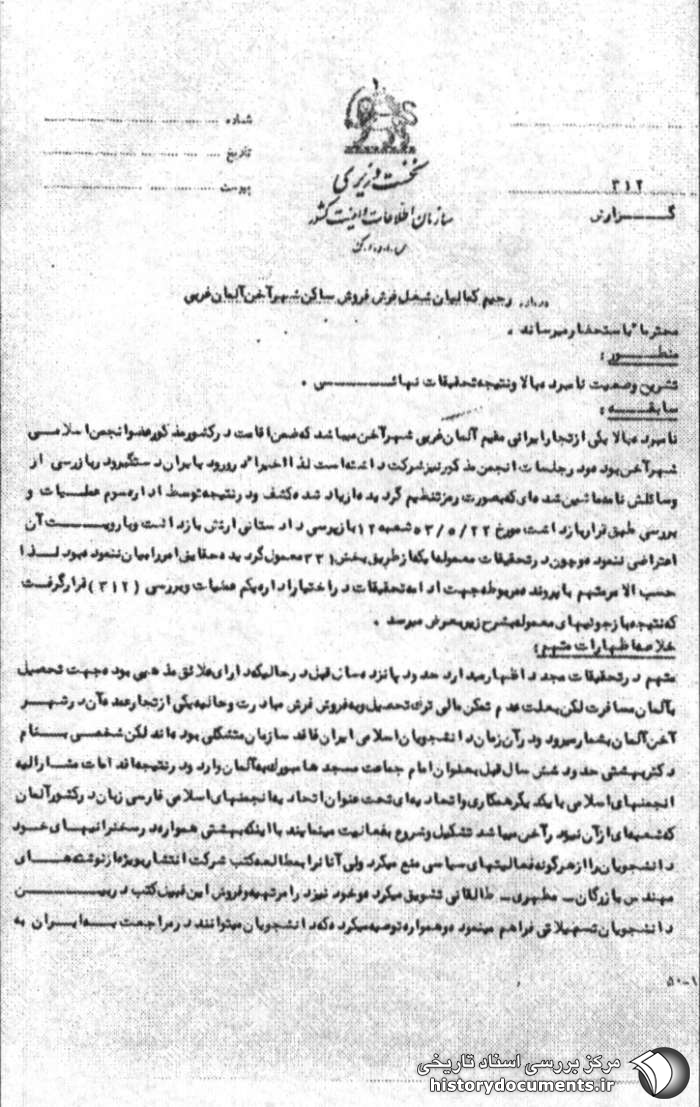 شماره
تاریخ
پیوست
نخست وزیری
سازمان اطلاعات و امنیت کشور
س.ا.و.ا.ک
۳۱۲
گزارش
درباره رحیم کمالیان شغل فرش فروش ساکن شهر آخن آلمان غربی
محترما" باستحضار میرساند .
منظور :
تشریح وضعیت نامبرده بالا و نتیجه تحقیقات نهائی .
سابقه :
نامبرده بالا یکی از تجار ایرانی مقیم آلمان غربی شهر آخن میباشد که ضمن اقامت در کشور مذکور عضو انجمن اسلامی
شهر آخن بوده و در جلسات انجمن مذکور نیز شرکت داشته است لذا اخیرا" در ورود بایران دستگیر و در بازرسی از
وسائلش نامه ماشین شده ای که بصورت رمز تنظیم گردیده از یاد شده کشف و در نتیجه توسط اداره سوم عملیات و
بررسی طبق قرار بازداشت مورخ ۵۳/۵/۲۲ شعبه ۱۲ بازپرسی دادستانی ارتش بازداشت و با رویت آن
اعتراضی ننموده و چون در تحقیقات معموله که از طریق بخش ۳۳۱ معمول گردیده حقایق امر را بیان ننموده بود لذا
حسب الامر متهم با پرونده مربوطه جهت ادامه تحقیقات در اختیار اداره یکم عملیات و بررسی (۳۱۲) قرار گرفت
که نتیجه بازجوئیهای معموله بشرح زیر بعرض میرسد .
خلاصه اظهارات متهم :
متهم در تحقیقات مجدد اظهار میدارد حدود پانزده سال قبل در حالیکه دارای علائق مذهبی بوده جهت تحصیل
بآلمان مسافرت لکن بعلت عدم تمکن مالی ترک تحصیل و به فروش فرش مبادرت و حالیه یکی از تجار عمده آن در شهر
آخن آلمان بشمار میرود و در آن زمان دانشجویان اسلامی ایران فاقد سازمان متشکلی بوده اند لکن شخصی بنام
دکتر بهشتی حدود شش سال قبل بعنوان امام جماعت مسجد هامبورگ به آلمان وارد و در نتیجه اقدامات مشارالیه
انجمنهای اسلامی با یکدیگر همکاری و اتحادیه ای تحت عنوان اتحادیه انجمنهای اسلامی فارسی زبان در کشور آلمان
که شعبه ای از آن نیز در آخن میباشد تشکیل و شروع بفعالیت مینمایند با اینکه بهشتی همواره در سخنرانیهای خود
دانشجویان را از هرگونه فعالیتهای سیاسی منع میکرد ولی آنانرا بمطالعه کتب شرکت انتشار بویژه از نوشته های
مهندس بازرگان - مطهری - طالقانی تشویق میکرد و خود نیز در تهیه و فروش این قبیل کتب در بین
دانشجویان تسهیلاتی فراهم مینمود و همواره توصیه میکرده که دانشجویان میتوانند در مراجعت به ایران به
۵۰-۱
مرکز بررسی اسناد تاریخی
historydocuments.ir